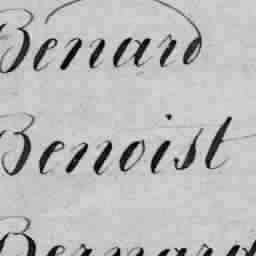 Benard
Benoist
Bernard